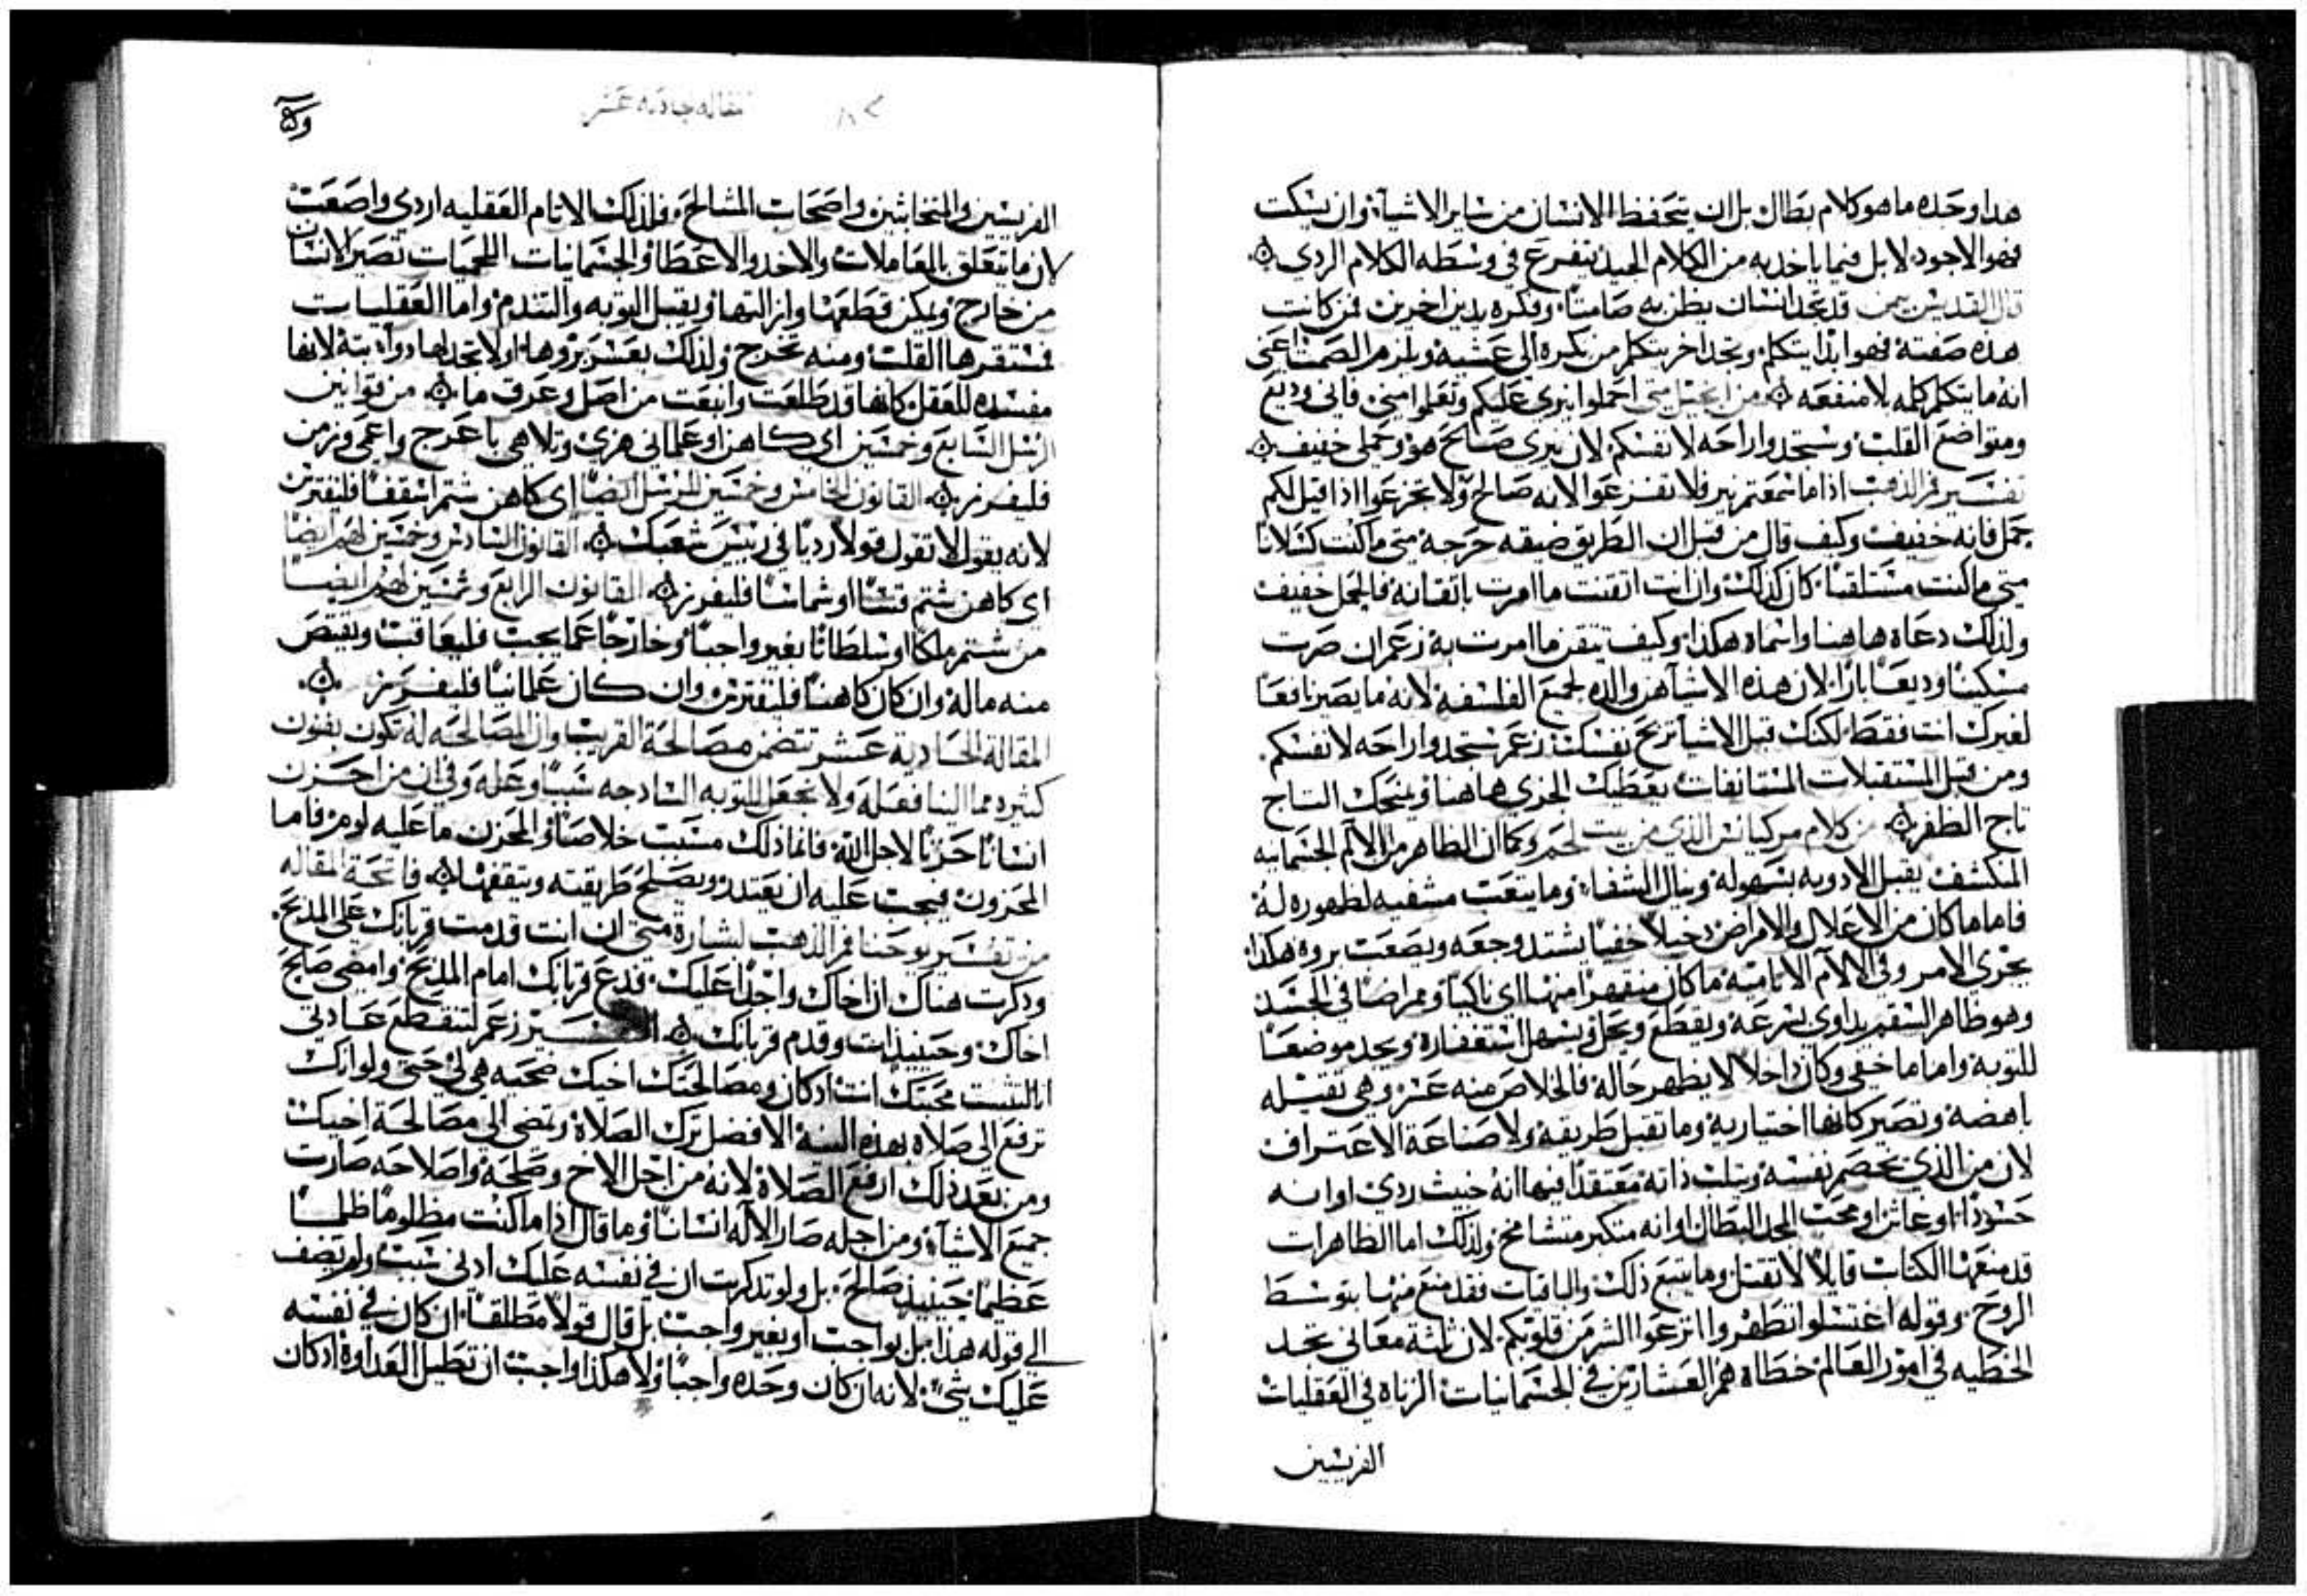 هدا وحده ما هو كلام بطال بل ان يتحفظ الانسان من ساير الاشياء وان يسكت
فهو الاجود لا بل فيما ياخد به من الكلام الجيد يتفرع في وسطه الكلام الردي
قال القديس بيمن قد تجد انسان يظن به صامتا وفكره يدين اخرين فمن كانت
هده صفته فهو ابدا يتكلم وتجد اخر يتكلم من بكره الى عشيه ويلزم الصمت اعني
انه ما يتكلم كلمه بلا منفعه من انجيل متى احملوا نيري عليكم وتعلموا مني فاني وديع
ومتواضع القلب وستجدوا راحه لانفسكم لان نيري صالح هو وحملي خفيف
تفسير فم الدهب ادا ما سمعتم نير فلا تفزعوا لانه صالح ولا تجزعوا ادا قيل لكم
حمل فانه خفيف وكيف قال من قبل ان الطريق ضيقه حرجه متى ما كنت كسلانا
متى ما كنت مستلقيا كان كذلك وان انت اتقنت ما امرت باتقانه فالحمل خفيف
ولذلك دعاه هاهنا واسماه هكذا وكيف تتقن ما امرت به زعم ان صرت
مسكينا وديعا بارا لان هذه الاشيا هن والده لجميع الفلسفه لانه ما يصير نافعا
لغيرك انت فقط لكنك قبل الاشيا تريح نفسك زعم ستجدوا راحه لانفسكم
ومن قبل المستقبلات المستانفات يعطيك الجزي هاهنا ويمنحك التاج
تاج الظفر من كلام مركيانس الذي من بيت لحم وكما ان الظاهر من الالام الجسمانيه
المنكشف يقبل الادويه بسهوله وينال الشفاء وما يتعب مشفيه لظهوره له
فاما ما كان من الاعلال والامراض دخيلا خفيا يشتد وجعه ويصعب بروه هكذا
يجري الامر وفي الالام الاثاميه ما كان منقهرا منها اي ناكيا وممراضا في الجسد
وهو ظاهر السقم يداوى بسرعه ويقطع ويحل ويسهل استغفاره ويجد موضعا
للتوبه واما ما خفي وكان داخلا لا يظهر حاله فالخلاص منه عسر وهي تقيله
باهضه وتصير كانها اختياريه وما تقبل طريقه ولا صناعة الاعتراف
لان من الذي يخصم نفسه ويثلب ذاته معتقدا فيها انه خبيث ردي او انه
حسودا او غاش او محب المجد البطال او انه متكبر متشامخ ولذلك اما الظاهرات
قد منعها الكتاب قايلا لا تقتل وما يتبع ذلك والباقيات فقد منع منها بتوسط
الروح وقوله اغتسلوا تطهروا انزعوا الشر من قلوبكم لان ثلثة معاني تجد
الخطيه في امور العالم خطاه هم العشارين في الجسمانيات الزناه في العقليات
الفريسين
مقاله حاديه عشر
الفريسين والمتخابثين واصحاب المشالح فلذلك الاثام العقليه اردي واصعب
لان ما يتعلق بالمعاملات والاخد والاعطا والجسمانيات اللحميات تصير للانسان
من خارج ويمكن قطعها وازالتها ويقبل التوبه والتندم واما العقليات
فمستقرها القلب ومنه تخرج ولذلك يعسر بروها او لا تجد لها دوا بته لانها
مفسده للعقل كانها قد طلعت وانبعت من اصل وعرق ما من قوانين
الرسل السابع وخمسين اي كاهن او علماني هزئ وتلاهى باعرج واعمى وزمن
فليفرز القانون الخامس وخمسين للرسل ايضا اي كاهن شتم اسقفا فليقترس
لانه يقول لا تقول قولا رديا في رييس شعبك القانون السادس وخمسين لهم ايضا
اي كاهن شتم قسا او شماسا فليفرز القانون الرابع وثمنين لهم ايضا
من شتم ملكا او سلطانا بغير واجبا وخارجا عما يجب فليعاقب ويقتص
منه ماله وان كان كاهنا فليقترس وان كان علمانيا فليفرز
المقالة الحادية عشر تتضمن مصالحة القريب وان المصالحه له تكون بفنون
كثيره مما الينا فعله ولا نجعل للتوبه السادجه سببا وعله وفي ان من احزن
انسانا حزنا لاجل الله فانما ذلك مسبب خلاصا والمحزن ما عليه لوم فاما
المحزون فيجب عليه ان يعتدد ويصلح طريقته ويثقفها فاتحة المقاله
من تفسير يوحنا فم الدهب لبشارة متى ان انت قدمت قربانك على المدبح
ودكرت هناك ان اخاك واجدا عليك فدع قربانك امام المدبح وامضي صالح
اخاك وحينيذ ات وقدم قربانك التفسير زعم لتنقطع عبادتي
انا لتثبت محبتك انت ادكان ومصالحتك اخيك ضحيه هي لي حتى ولو انك
ترفع الي صلاه بهذه النية الافضل ترك الصلاة وتمضي الى مصالحة اخيك
ومن بعد ذلك ارفع الصلاة لانه من اجل الاخ وصلحه واصلاحه صارت
جميع الاشياء ومن اجله صار الاله انسانا وما قال اذا ما كنت مظلوما ظلما
عظيما حينيذ صالح بل ولو تدكرت ان في نفسه عليك ادنى سبب ولم يضف
الى قوله هذا بل بواجب او بغير واجب بل قال قولا مطلقا ان كان في نفسه
عليك شي لانه ان كان وحده واجبا ولا هكذا واجب ان تطيل العداوة ادكان